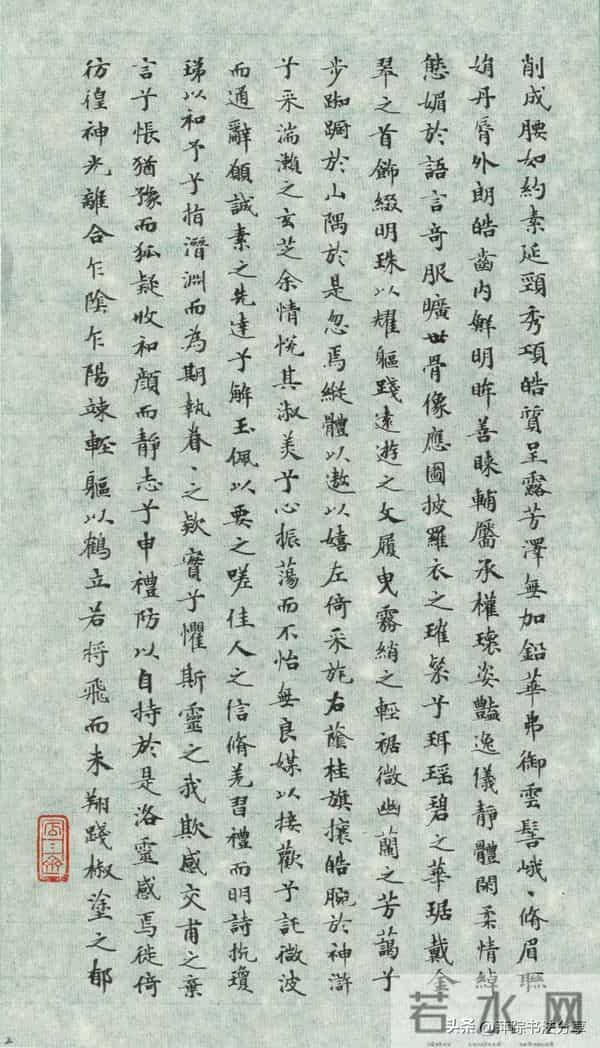 削成腰如約素延頸秀項皓質呈露芳澤無加鉛華弗御雲髻峨、脩眉聯
娟丹脣外朗皓齒內鮮明眸善睞輔靨承權瓌姿豔逸儀靜體閑柔情綽
態媚於語言奇服曠世骨像應圖披羅衣之璀粲兮珥瑶碧之華琚戴金
翠之首飾綴明珠以耀軀踐遠遊之文履曳霧綃之輕裾微幽蘭之芳藹兮
步踟躕於山隅於是忽焉縱體以遨以嬉左倚采旄右蔭桂旗攘皓腕於神滸
兮采湍瀨之玄芝余情悅其淑美兮心振蕩而不怡無良媒以接歡兮託微波
而通辭願誠素之先達兮解玉佩以要之嗟佳人之信脩羌習禮而明詩抗瓊
珶以和予兮指潛淵而為期執眷、之款實兮懼斯靈之我欺感交甫之棄
言兮悵猶豫而狐疑收和顏而靜志兮申禮防以自持於是洛靈感焉徙倚
彷徨神光離合乍陰乍陽竦輕軀以鶴立若將飛而未翔踐椒塗之郁
若水网
头条@萍踪书法分享